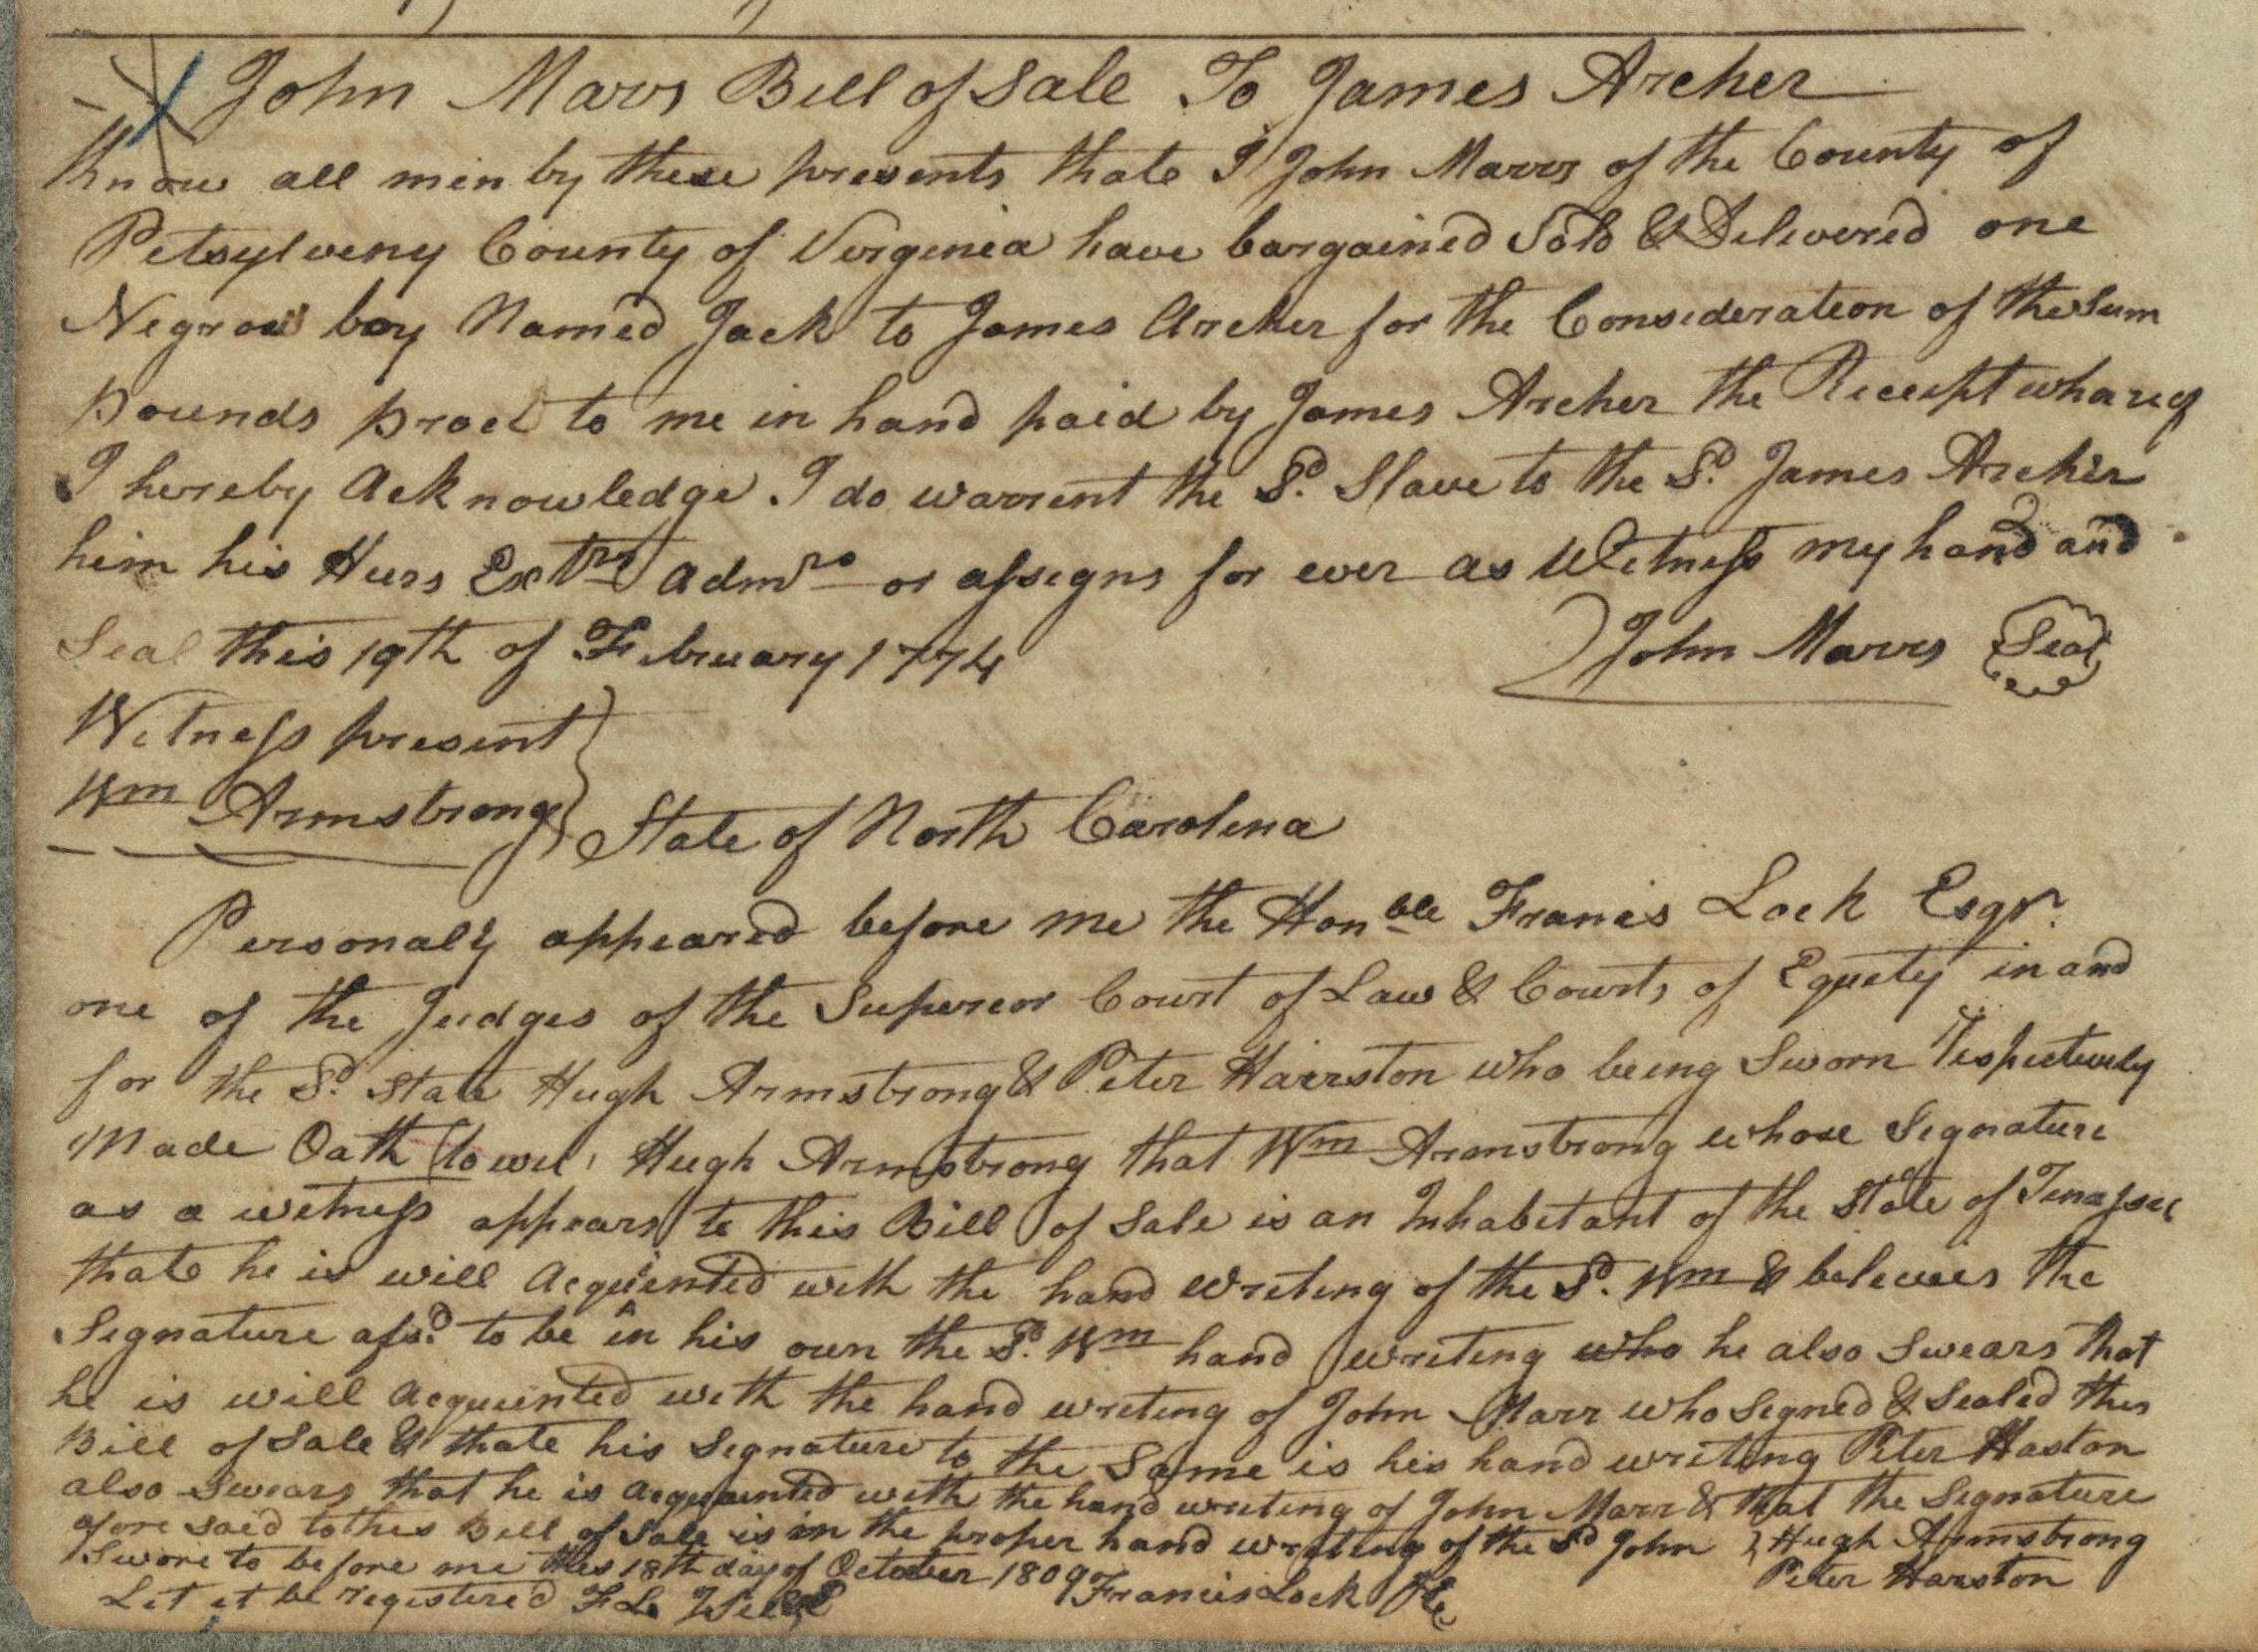 John Marrs Bill of Sale To James Archer
Know all men by these presents thate I John Marrs of the County of
Petsylveny County of Virginia have bargained Sold & Delivered one
Negroe boy Named Jack to James Archer for the Consideration of the Sum
pounds procl to me in hand paid by James Archer the Receipt whareof
I hereby Acknowledge. I do warrent the Sd. Slave to the Sd. James Archer
him his Hurs Extrs Admrs or assigns for ever as Witness my hand and
Seal this 19th of February 1774 John Marrs Seal
Witness present
Wm Armstrong
State of North Carolina
Personaly appeared before me the Honble Francis Lock Esqr.
one of the Judges of the Superior Court of Law & Courts of Equety in and
for the Sd. State Hugh Armstrong & Peter Hairston who being Sworn respectively
Made Oath to wit, Hugh Armstrong that Wm Armstrong whose Signature
as a witness appears to this Bill of Sale is an Inhabitant of the State of Tenassee
thate he is will Acquinted with the hand writing of the Sd. Wm & beleives the
Signature afsd. to be in his own the Sd. Wm hand writing who he also Swears that
he is will acquinted with the hand writing of John Marr who Signed & Sealed this
Bill of Sale & thate his Signature to the Same is his hand writing Peter Haston
also Swears that he is acquainted with the hand writing of John Marr & that the Signature
afore said to this Bill of Sale is in the proper hand writing of the Sd John } Hugh Armstrong
Swore to before me this 18th day of October 1809 Francis Lock Peter Harston
Let it be registered F L